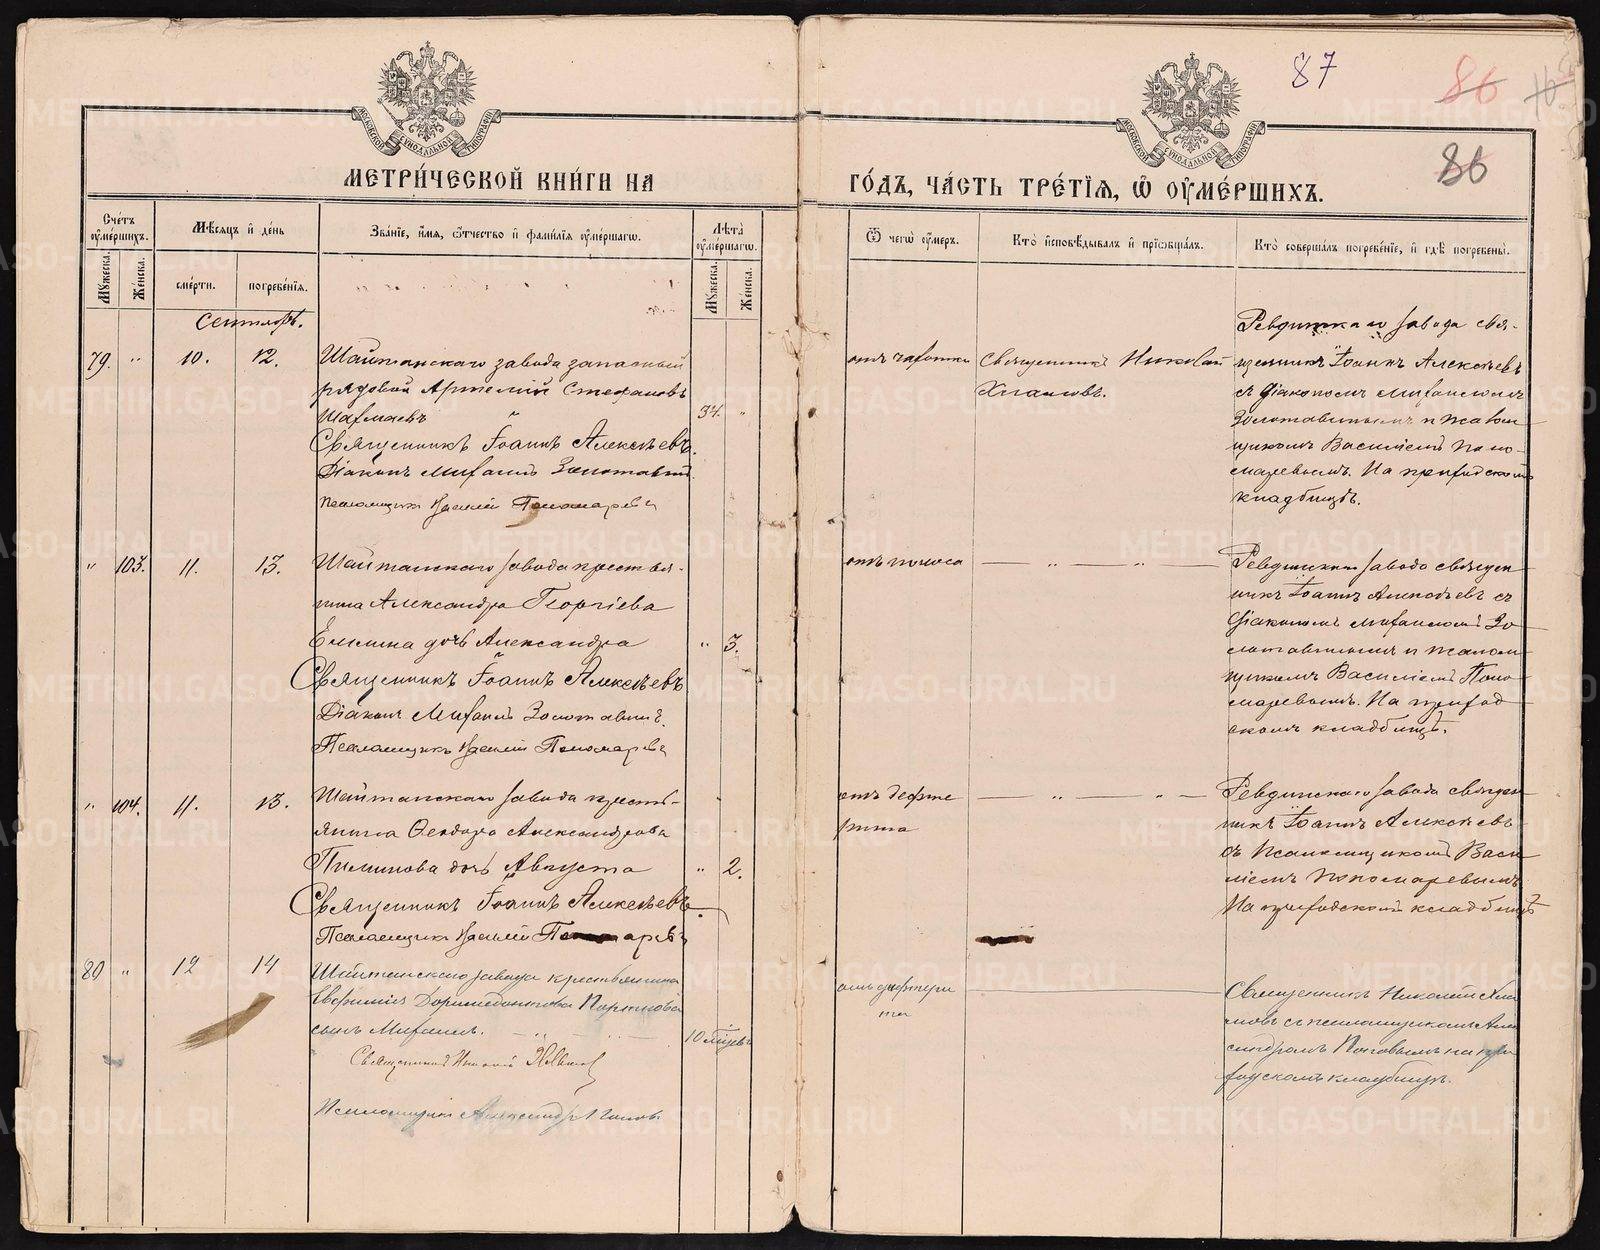 87
86
86
МОСКОВСКОЙ СѴНОДАЛЬНОЙ ТИПОГРАФІИ
МОСКОВСКОЙ СѴНОДАЛЬНОЙ ТИПОГРАФІИ
МЕТРИ́ЧЕСКОЙ КНИ́ГИ НА
ГО́ДЪ, ЧА́СТЬ ТРЕ́ТІѦ, Ѿ ОУМЕ́РШИХЪ.
Сче́тъ оумершихъ.
Мѣсяцъ и день
Зва́ніе, имя, ѻтчество и фами́лія оуме́ршагѡ.
Лѣта оуме́ршагѡ.
Ѿ чегѡ оумеръ.
Кто̀ исповѣдывалъ и пріѡбщалъ.
Кто̀ совершалъ погребе́ніе, и гдѣ погребены̀.
Мужеска.
Женска.
сме́рти.
погребе́нія.
Мужеска.
Женска.
Сентябрь.
79. " 10. 12.
Шайтанскаго завода запасный
рядовой Артемій Стефановъ
Шахмаевъ
34. "
Священникъ Іоаннъ Алексѣевъ.
Діаконъ Михаилъ Золотавинъ
Псаломщикъ Василій Пономаревъ
отъ чахотки
Священникъ Николай
Хламовъ.
Ревдинскаго завода свя-
щенникъ Іоаннъ Алексѣевъ
съ діакономъ Михаиломъ
Золотавинымъ и псалом
щикомъ Василіемъ Поно-
маревымъ. На приходскомъ
кладбищѣ.
" 103. 11. 13.
Шайтанскаго завода крестья-
нина Александра Георгіева
Емлина дочь Александра
" 3.
Священникъ Іоаннъ Алексѣевъ
Діаконъ Михаилъ Золотавинъ.
Псаломщикъ Василій Пономаревъ
отъ поноса
— " — " —
Ревдинскаго завода священ
никъ Іоаннъ Алексѣевъ съ
діакономъ Михаиломъ Зо
лотавинымъ и псалом
щикомъ Василіемъ Поно
маревымъ. На приход
скомъ кладбищѣ.
" 104. 11. 13.
Шайтанскаго завода кресть-
янина Ѳеодора Александрова
Пилинова дочь Августа
" 2.
Священникъ Іоаннъ Алексѣевъ.
Псаломщикъ Василій Пономаревъ
отъ дефте
рита
— " — " —
Ревдинскаго завода священ
никъ Іоаннъ Алексѣевъ
съ псаломщикомъ Васи
ліемъ Пономаревымъ
На приходскомъ кладбищѣ
80 " 12 14
Шайтанскаго завода крестьянина
Евфимія Доримедонтова
сынъ Михаилъ.
10
Священникъ Николай Хламов
Псаломщикъ Александръ Поповъ
отъ дифтери
та
Священникъ Николай Хла
мовъ съ псаломщикомъ Алек
сандромъ Поповымъ на при
ходскомъ кладбищѣ.
METRIKI.GASO-URAL.RU